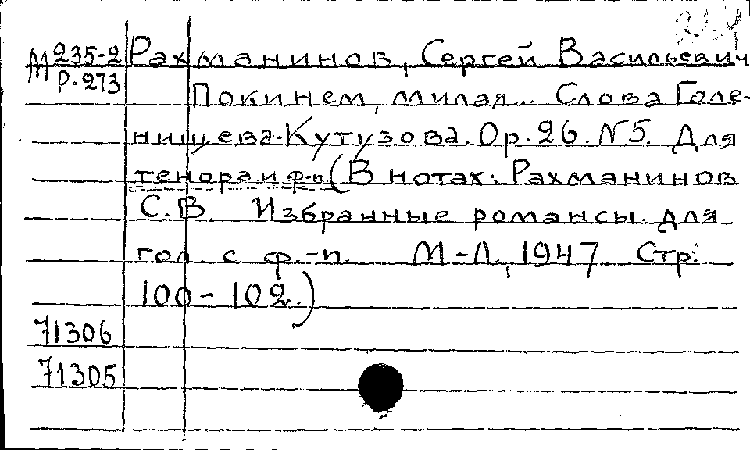 М 235-2 Рахманинов, Сергей Васильевич
Р-273 Покинем, милая.. Слова Голе-
нищева-Кутузова. Ор. 26. N5. Для
тенора и ф-п (В нотах: Рахманинов
С.В. Избранные романсы для
гол. с ф.-п. М-Л, 1947 Стр.
100-102.)
71306
71305